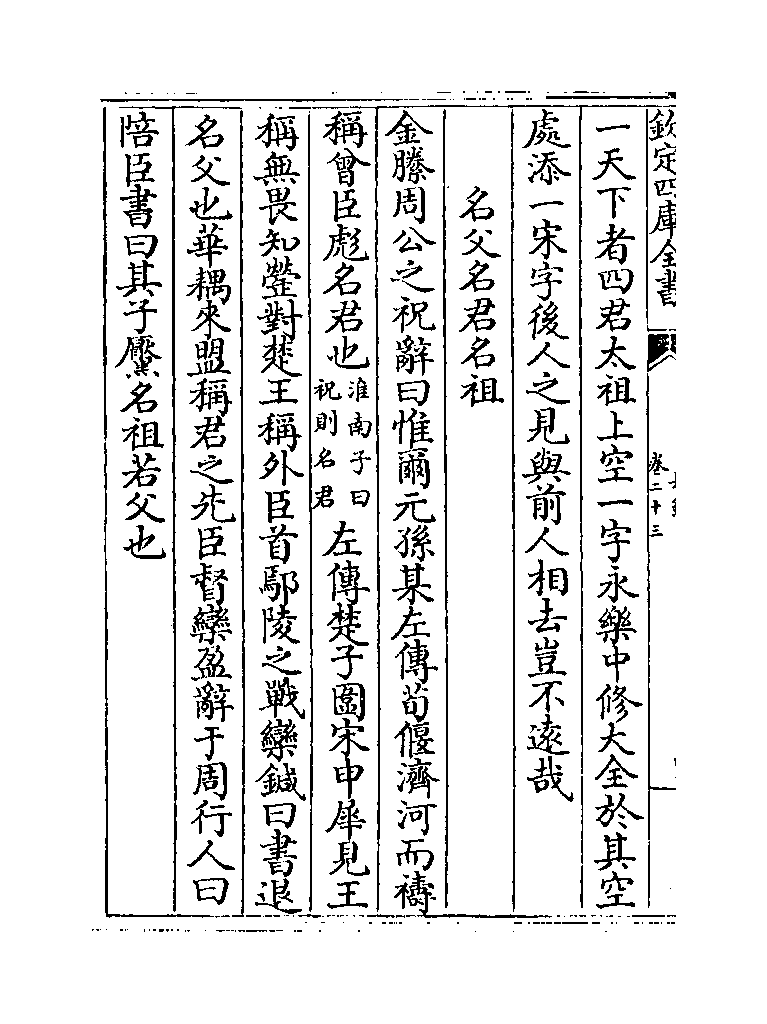 欽定四庫全書
卷二十三
一天下者四君太祖上空一字永樂中修大全於其空
處添一宋字後人之見與前人相去豈不遠哉
名父名君名祖
金縢周公之祝辭曰惟爾元孫某左傳荀偃濟河而禱
稱曾臣彪名君也淮南子曰祝則名君左傳楚子圍宋申犀見王
稱無畏知罃對楚王稱外臣首鄢陵之戰欒鍼曰書退
名父也華耦來盟稱君之先臣督欒盈辭于周行人曰
陪臣書曰其子黶名祖若父也